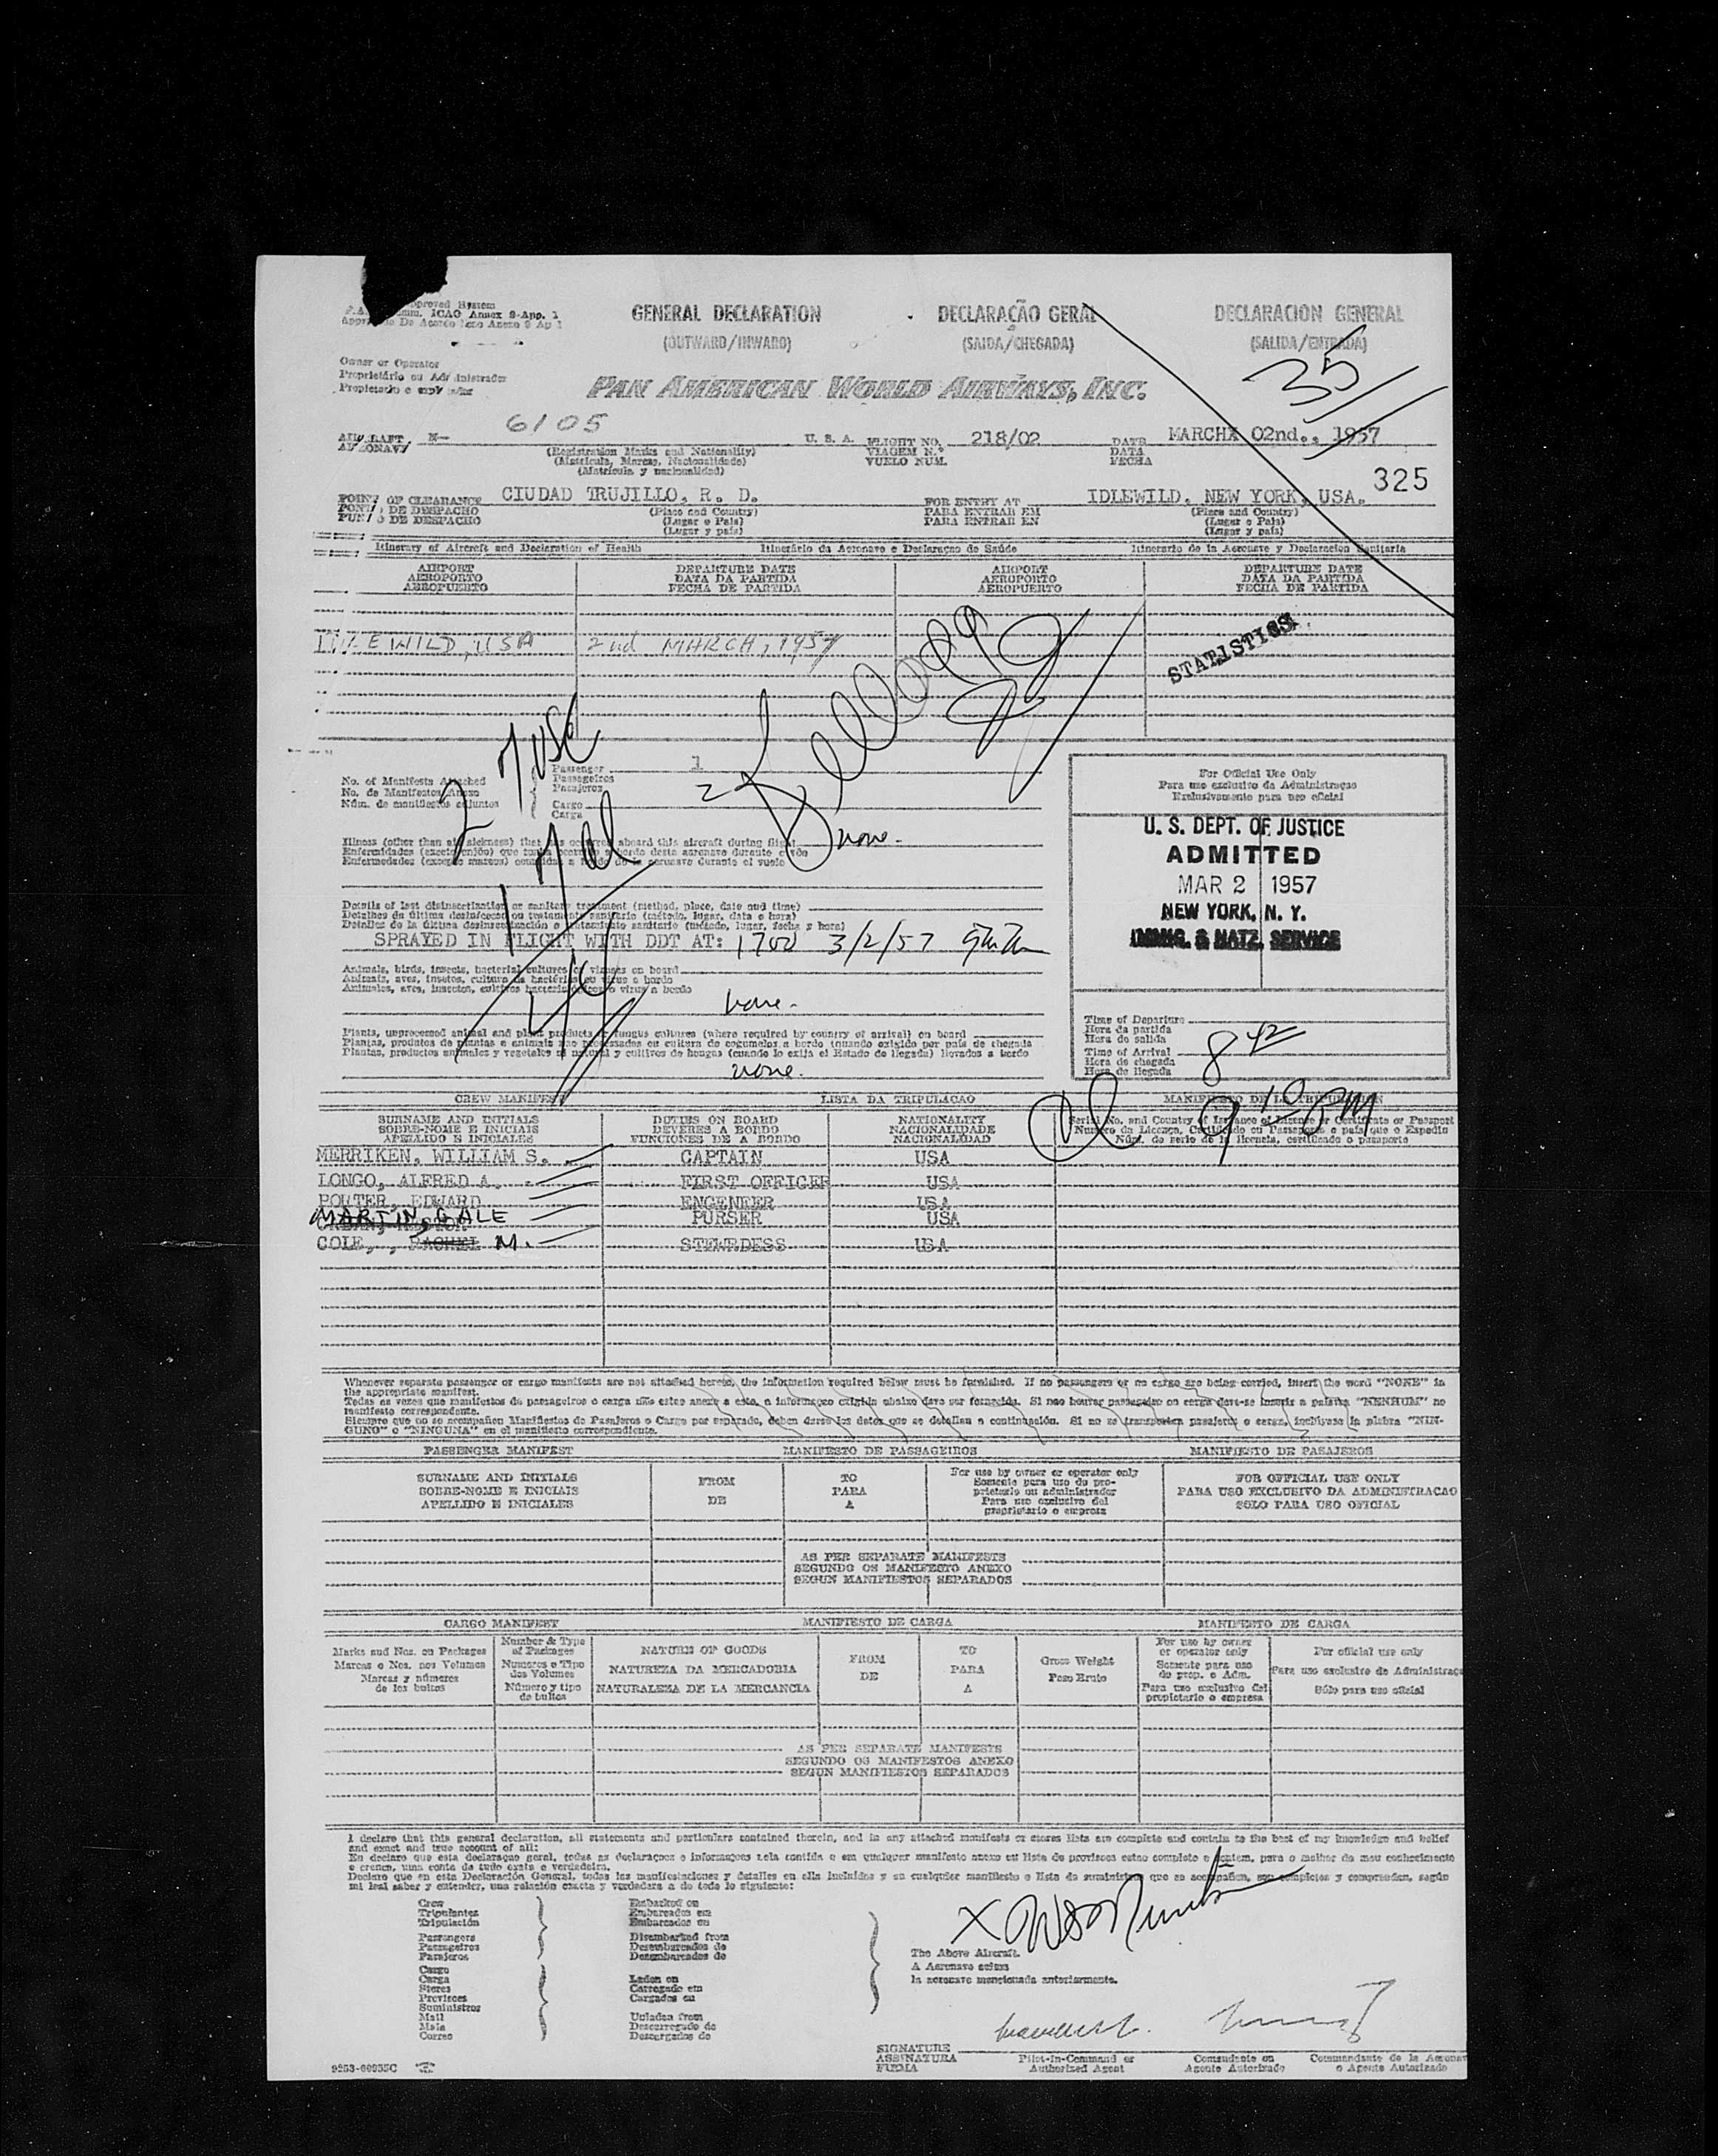 proved System
ICAO Annex 9-App. 1
GENERAL DECLARATION
(OUTWARD/INWARD)
DECLARAÇÃO GERAL
(SAIDA/CHEGADA)
DECLARACION GENERAL
(SALIDA/ENTRADA)
35
Owner or Operator
Proprietário ou Administrador
Propietario o
PAN AMERICAN WORLD AIRWAYS, INC.
AIRCRAFT N- 6105 U. S. A. FLIGHT NO. 218/02 DATE MARCHX 02nd., 1957
AERONAVE VIAGEM N.º DATA
VUELO NUM. FECHA
(Registration Marks and Nationality)
(Matricula, Marcas, Nacionalidade)
(Matricula y nacionalidad)
325
POINT OF CLEARANCE CIUDAD TRUJILLO, R. D. FOR ENTRY AT IDLEWILD, NEW YORK, USA.
PONTO DE DESPACHO (Place and Country) PARA ENTRAR EM (Place and Country)
PUNTO DE DESPACHO (Lugar e País) PARA ENTRAR EN (Lugar e País)
(Lugar y país) (Lugar y país)
Itinerary of Aircraft and Declaration of Health Itinerário da Aeronave e Declaraçao de Saúde Itinerario de la Aeronave y Declaracion Sanitaria
AIRPORT DEPARTURE DATE AIRPORT DEPARTURE DATE
AEROPORTO DATA DA PARTIDA AEROPORTO DATA DA PARTIDA
AEROPUERTO FECHA DE PARTIDA AEROPUERTO FECHA DE PARTIDA
IDLEWILD, USA 2nd MARCH, 1957
STATISTICS
Kellogg
2 USC
No. of Manifests Attached Passenger 1
No. de Manifestos Anexo Passageiros
Núm. de manifiestos adjuntos Pasajeros
Cargo 2
Carga
Illness (other than air sickness) that has occurred aboard this aircraft during flight none.
Enfermidades (exceto enjôo) que tenha ocorrido a bordo desta aeronave durante o vôo
Enfermedades (excepto mareos) ocurridas a bordo de la aeronave durante el vuelo
Details of last disinsectization or sanitary treatment (method, place, date and time)
Detalhes da última desinfeccao ou tratamento sanitário (método, lugar, data e hora)
Detalles de la última desinsectización o tratamiento sanitario (método, lugar, fecha y hora)
SPRAYED IN FLIGHT WITH DDT AT: 1700 3/2/57
Animals, birds, insects, bacterial cultures or viruses on board
Animais, aves, insetos, cultura de bactérias ou virus a bordo
Animales, aves, insectos, cultivos bacterianos o virus a bordo
none.
Plants, unprocessed animal and plant products or fungus cultures (where required by country of arrival) on board
Plantas, produtos de plantas e animais nao processadas ou cultura de cogumelos a bordo (quando exigido por país de chegada
Plantas, productos animales y vegetales al natural y cultivos de hongos (cuando lo exija el Estado de llegada) llevados a bordo
none.
For Official Use Only
Para uso exclusivo da Administraçao
Exclusivamente para uso oficial
U. S. DEPT. OF JUSTICE
ADMITTED
MAR 2 1957
NEW YORK, N. Y.
IMMIG. & NATZ. SERVICE
Time of Departure
Hora da partida
Hora de salida
Time of Arrival 8 42
Hora de chegada
Hora de llegada
9 10 PM
CREW MANIFEST LISTA DA TRIPULACAO MANIFIESTO DE LA TRIPULACION
SURNAME AND INITIALS DUTIES ON BOARD NATIONALITY Serial No. and Country of Issuance of License or Certificate or Passport
SOBRE-NOME E INICIAIS DEVERES A BORDO NACIONALIDADE Numero da Licenca, Certificado ou Passaporte e país que o Expediu
APELLIDO E INICIALES FUNCIONES DE A BORDO NACIONALIDAD Núm. de serie de la licencia, certificado o pasaporte
MERRIKEN, WILLIAM S. CAPTAIN USA
LONGO, ALFRED A. FIRST OFFICER USA
PORTER, EDWARD ENGENEER USA
MARTIN, GALE PURSER USA
COLE, RACHEL M. STEWEDESS USA
Whenever separate passenger or cargo manifests are not attached hereto, the information required below must be furnished. If no passengers or no cargo are being carried, insert the word "NONE" in
the appropriate manifest.
Todas as vezes que manifestos de passageiros o carga não estao anexo a este, a informaçao exigida abaixo deve ser fornecida. Si nao houver passageiro ou carga deve-se inserir a palavra "NENHUM" no
manifesto correspondente.
Siempre que no se acompañen Manifiestos de Pasajeros o Carga por separado, deben darse los datos que se detallan a continuación. Si no se transportan pasajeros o carga, inclúyase la plabra "NIN-
GUNO" o "NINGUNA" en el manifiesto correspondiente.
PASSENGER MANIFEST MANIFESTO DE PASSAGEIROS MANIFIESTO DE PASAJEROS
SURNAME AND INITIALS FROM TO For use by owner or operator only FOR OFFICIAL USE ONLY
SOBRE-NOME E INICIAIS DE PARA Somente para uso do pro- PARA USO EXCLUSIVO DA ADMINISTRACAO
APELLIDO E INICIALES A prietario ou administrador SOLO PARA USO OFICIAL
Para uso exclusivo del
propietario o empresa
AS PER SEPARATE MANIFESTS
SEGUNDO OS MANIFESTO ANEXO
SEGUN MANIFIESTOS SEPARADOS
CARGO MANIFEST MANIFIESTO DE CARGA MANIFIESTO DE CARGA
Marks and Nos. on Packages Number & Type of Packages NATURE OF GOODS FROM TO Gross Weight For use by owner or operator only For official use only
Marcas e Nos. nos Volumes Numeros e Tipo dos Volumes NATUREZA DA MERCADORIA DE PARA Peso Bruto Somente para uso do prop. o Adm. Para uso exclusivo de Administraç
Marcas y números de los bultos Número y tipo de bultos NATURALEZA DE LA MERCANCIA A Para uso exclusivo del propietario o empresa Sólo para uso oficial
AS PER SEPARATE MANIFESTS
SEGUNDO OS MANIFESTOS ANEXO
SEGUN MANIFIESTOS SEPARADOS
I declare that this general declaration, all statements and particulars contained therein, and in any attached manifests or stores lists are complete and contain to the best of my knowledge and belief
and exact and true account of all:
Eu declaro que esta declaraçao geral, todas as declaraçoes e informaçoes nela contida e em qualquer manifesto anexo ou lista de provisoes estao completo e contem, para o melhor de meu conhecimento
e crenca, uma conta de tudo exata e verdadeira.
Declaro que en esta Declaración General, todas las manifestaciones y detalles en ella incluidos y en cualquier manifiesto o lista de suministros que se acompañen, son completos y comprenden, según
mi leal saber y entender, una relación exacta y verdadera a de todo lo siguiente:
Crew Embarked on
Tripulantes Embarcados em
Tripulación Embarcados en
Passengers Disembarked from
Passageiros Desembarcados de
Pasajeros Desembarcados de
Cargo
Carga Laden on
Stores Carregado em
Provisoes Cargados en
Suministros
Mail Unladen from
Mala Descarregado de
Correo Descargados de
X
The Above Aircraft.
A Aeronave acima
la aeronave mencionada anteriormente.
SIGNATURE
ASSINATURA Pilot-in-Command or Comandante ou Commandante de la Aeronav
FIRMA Authorized Agent Agente Autorizado o Agente Autorizado
9253-60955C